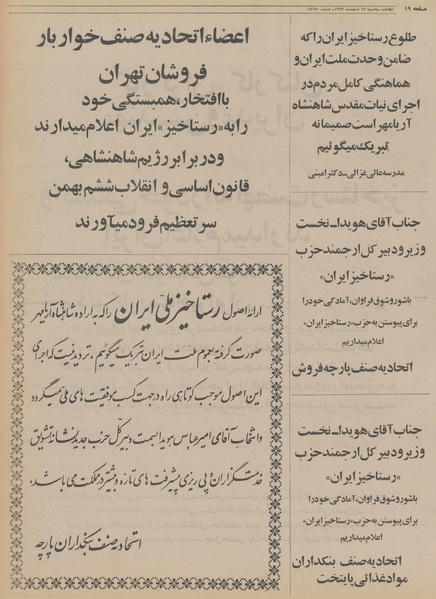 صفحه ۱۹
طلوع رستاخیز ایران را که
ضامن وحدت ملت ایران و
هماهنگی کامل مردم در
اجرای نیات مقدس شاهنشاه
آریامهر است صمیمانه
تبریک میگوئیم
مدرسه عالی غزالی ـ دکتر امینی
جناب آقای هویدا ـ نخست
وزیر و دبیر کل ارجمند حزب
«رستاخیز ایران»
باشور و شوق فراوان، آمادگی خود را
برای پیوستن به حزب «رستاخیز ایران»
اعلام میداریم
اتحادیه صنف پارچه فروش
جناب آقای هویدا ـ نخست
وزیر و دبیر کل ارجمند حزب
«رستاخیز ایران»
باشور و شوق فراوان، آمادگی خود را
برای پیوستن به حزب «رستاخیز ایران»
اعلام میداریم
اتحادیه صنف بنکداران
مواد غذائی پایتخت
اعضاء اتحادیه صنف خواربار
فروشان تهران
با افتخار، همبستگی خود
را به «رستاخیز» ایران اعلام میدارند
و در برابر رژیم شاهنشاهی،
قانون اساسی و انقلاب ششم بهمن
سر تعظیم فرود میآورند
ارائه اصول رستاخیز ملی ایران را که به اراده شاهنشاه آریامهر
صورت گرفته بعموم ملت ایران تبریک میگوییم. تردید نیست که اجرای
این اصول موجب کوتاهی راه در جهت کسب موفقیت های ملی میگردد
و انتخاب آقای امیرعباس هویدا بسمت دبیر کل حزب جدید نشانه تشویق
خدمتگزاران و پی ریزی پیشرفت های تازه و بیشتر در مملکت می باشد.
اتحادیه صنف بنکداران پارچه